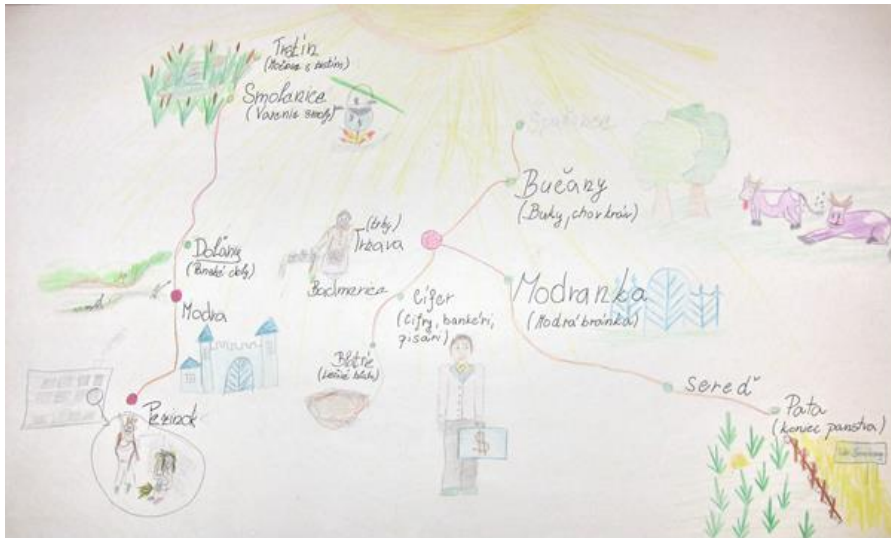 Trstín
(Močiar s trstím)
Smolenice
(Varenie smoly)
Bučany
(Buky, chov kráv)
(trhy)
Trnava
Doľany
(Panské doly)
Modra
Cífer
(Cifry, bankéri,
pisári)
Modranka
(Modrá bránka)
Blatné
(Liečivé blato)
Pezinok
Sereď
Pata
(koniec panstva)
$